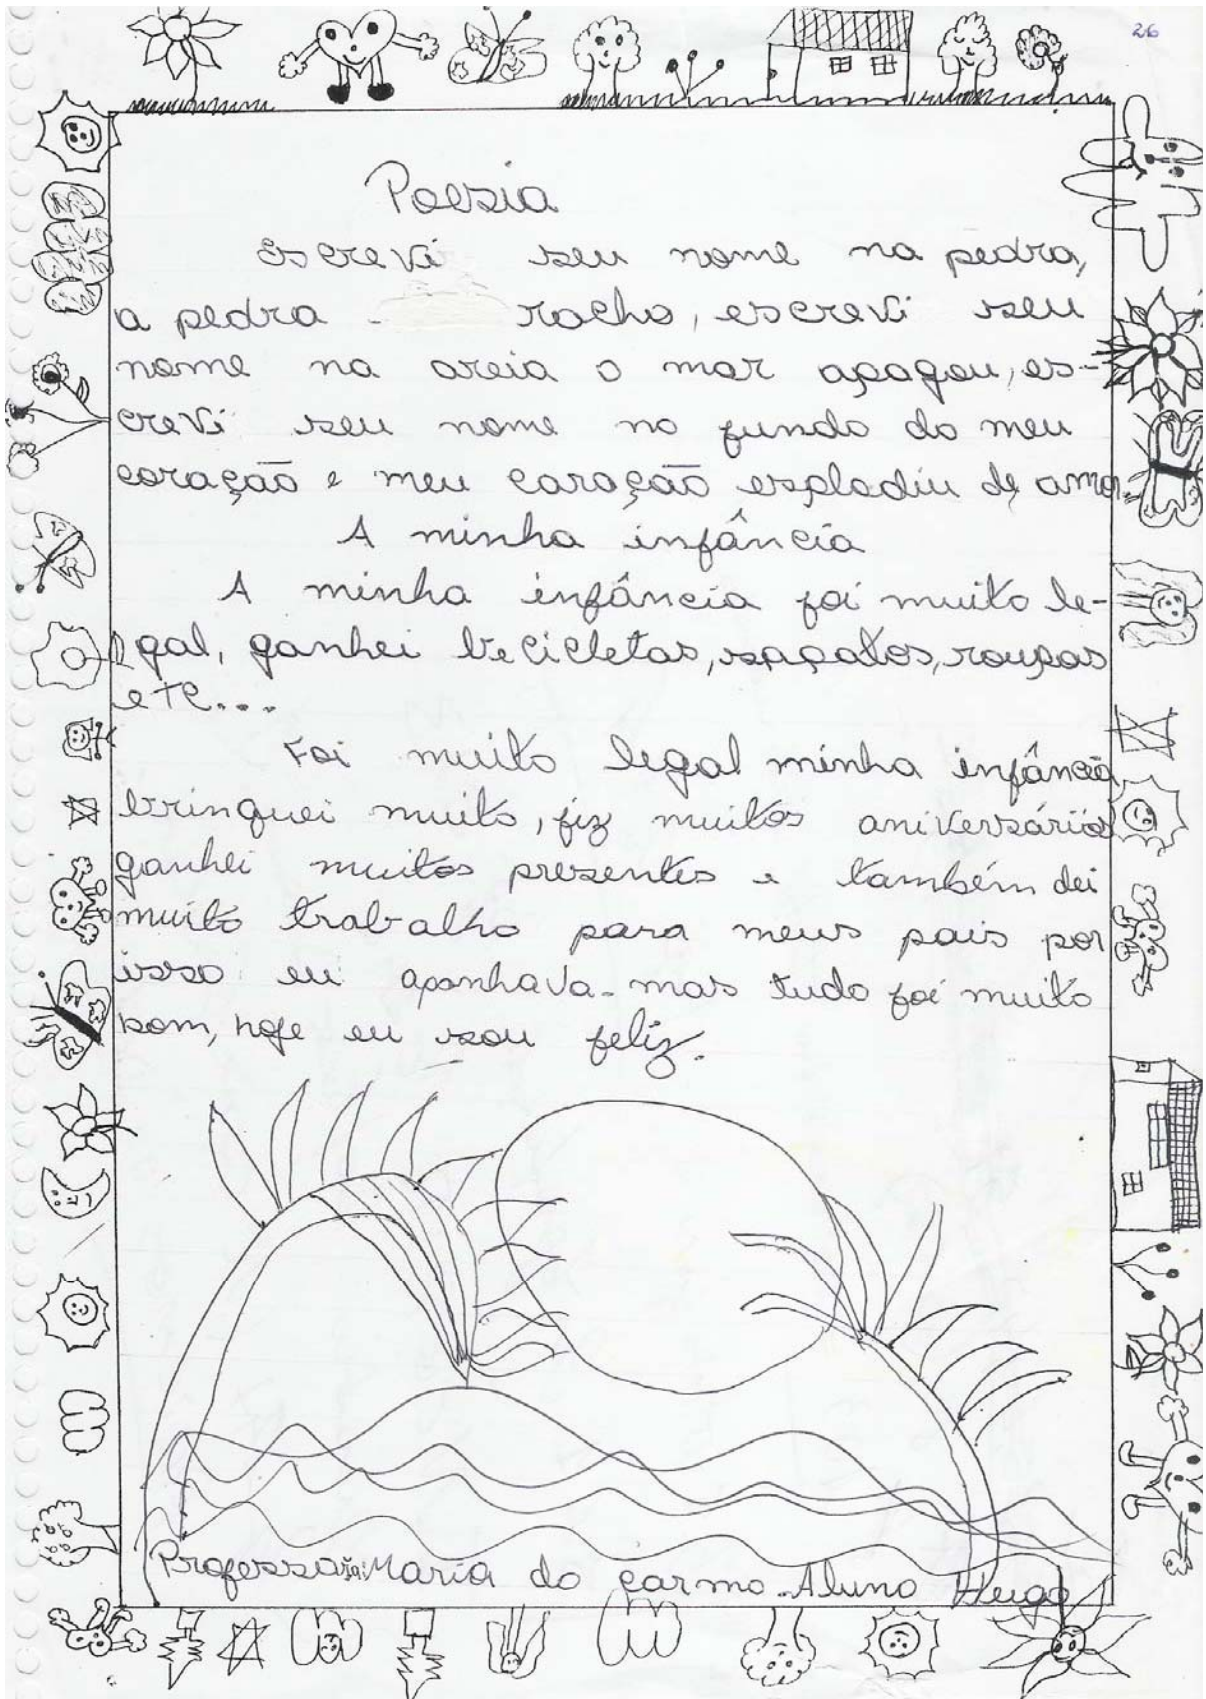 26
Poesia
Escrevi seu nome na pedra,
a pedra - rocho, escrevi seu
nome na areia o mar apagou, es-
crevi seu nome no fundo do meu
coração e meu coração esplodiu de amor.
A minha infância
A minha infância foi muito le-
gal, ganhei becicletas, sapatos, roupas
etc...
Foi muito legal minha infância
brinquei muito, fiz muitos aniversários
ganhei muitos presentes e também dei
muito trabalho para meus pais por
isso eu apanhava - mas tudo foi muito
bom, hoje eu sou feliz.
Maria do Carmo - Aluno Hugo